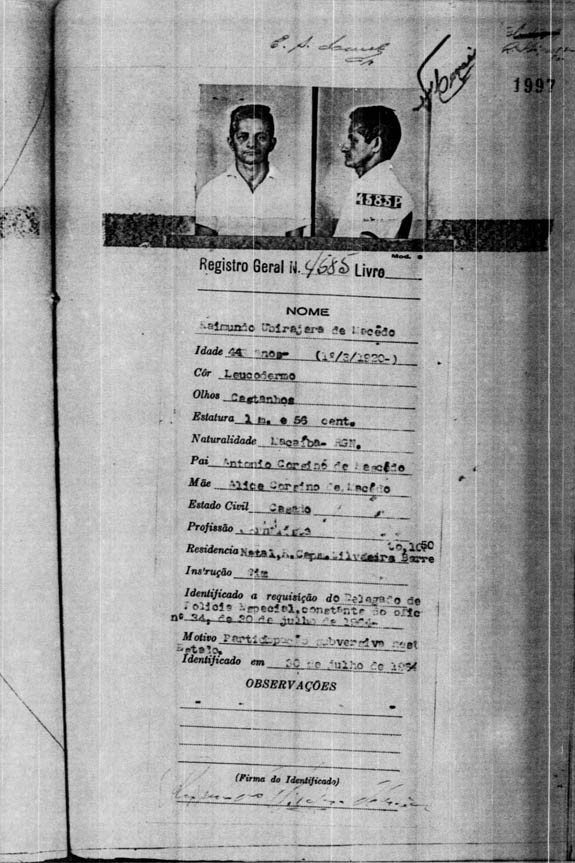 1997
4585P
Mod. 2
Registro Geral N. 4585 Livro
NOME
Raimundo Ubirajara de Macêdo
Idade 44 anos- (1º/3/1920-)
Côr Leucodermo
Olhos Castanhos
Estatura 1 m. e 56 cent.
Naturalidade Macaíba- RGN.
Pai Antonio Corsino de Macêdo
Mãe Alice Corsino de Macêdo
Estado Civil Casado
Profissão
to, 1050
Residencia Natal, R. Cap. Silveira Barre
Instrução Sim
Identificado a requisição do Delegado de
Policia Especial, constante do ofic
nº 34, de 30 de julho de 1964-
Motivo Participação subversiva nest
Estado.
Identificado em 30 de julho de 1964
OBSERVAÇÕES
(Firma do Identificado)